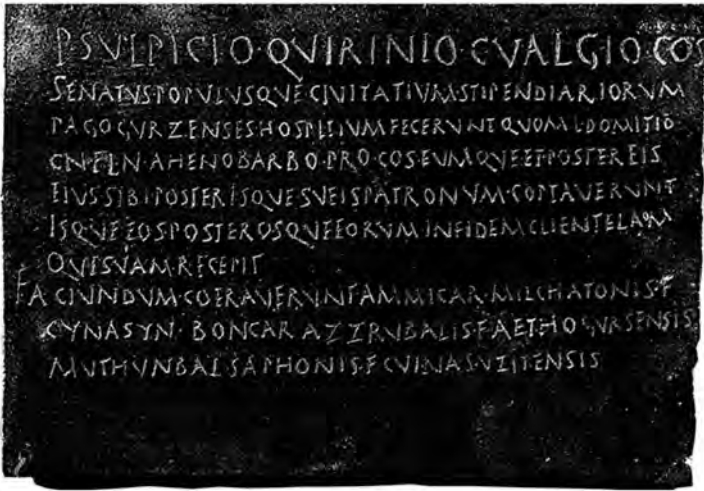 P·SVLPICIO·QVIRINIO·C·VALGIO·COS
SENATVS·POPVLVSQVE·CIVITATIVM·STIPENDIARIORVM
PAGO·GVRZENSES·HOSPITIVM·FECERVNT·QVOM·L·DOMITIO
CN·F·L·N·AHENOBARBO·PRO·COS·EVMQVE·ET·POSTEREIS
EIVS·SIBI·POSTERISQVE·SVEIS·PATRONVM·COPTAVERVNT
ISQVE·EOS·POSTEROSQVE·EORVM·IN·FIDEM·CLIENTELAM
QVE·SVAM·RECEPIT
FACIVNDVM·COERAVERVNT·AMMICAR·MILCHATONIS·F
CYNASYN·BONCAR·AZZRVBALIS·F·AETHOGVRSENSIS
MVTHVNBAL·SAPHONIS·F·CVI·NAS·VZITENSIS